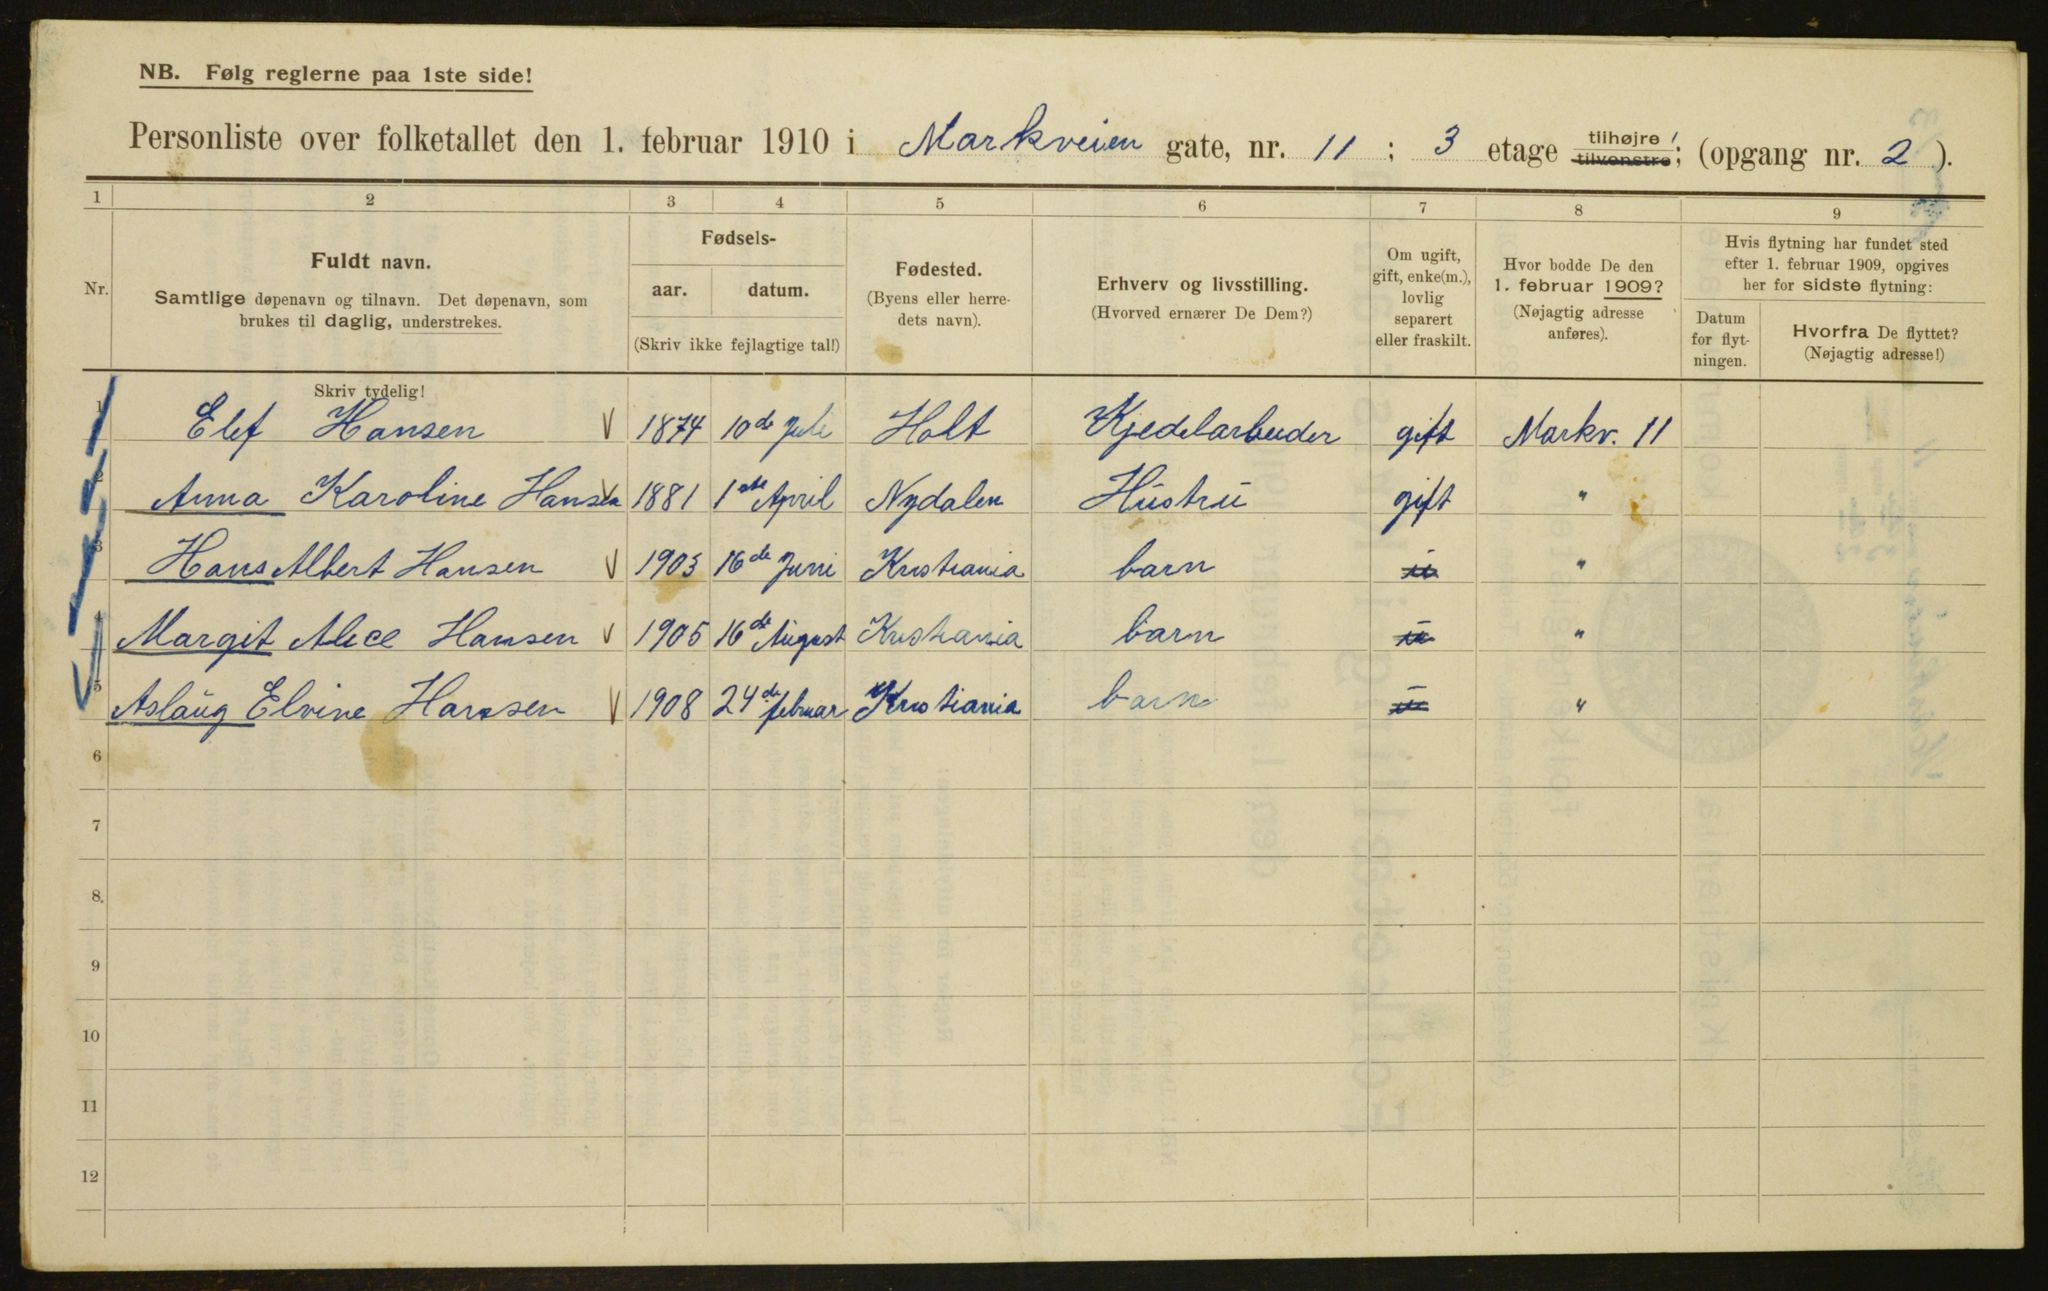 NB. Følg reglerne paa 1ste side!
Personliste over folketallet den 1. februar 1910 i Markveien gate, nr. 11 ; 3 etage tilhøjre! tilvenstre; (opgang nr. 2 ).
1 2 3 4 5 6 7 8 9
Nr.
Fuldt navn.
Samtlige døpenavn og tilnavn. Det døpenavn, som
brukes til daglig, understrekes.
Fødsels-
aar. datum.
(Skriv ikke fejlagtige tal!)
Fødested.
(Byens eller herre-
dets navn).
Erhverv og livsstilling.
(Hvorved ernærer De Dem?)
Om ugift,
gift, enke(m.),
lovlig
separert
eller fraskilt.
Hvor bodde De den
1. februar 1909?
(Nøjagtig adresse
anføres).
Hvis flytning har fundet sted
efter 1. februar 1909, opgives
her for sidste flytning:
Datum
for flyt-
ningen.
Hvorfra De flyttet?
(Nøjagtig adresse!)
Skriv tydelig!
1 Elef Hansen 1874 10de Juli Holt Kjedelarbeider gift Markv. 11
2 Anna Karoline Hansen 1881 1ste April Nydalen Hustru gift "
3 Hans Albert Hansen 1903 16de Juni Kristiania barn u "
4 Margit Alice Hansen 1905 16de August Kristiania barn u "
5 Aslaug Elvine Hansen 1908 24de februar Kristiania barn u "
6
7
8
9
10
11
12